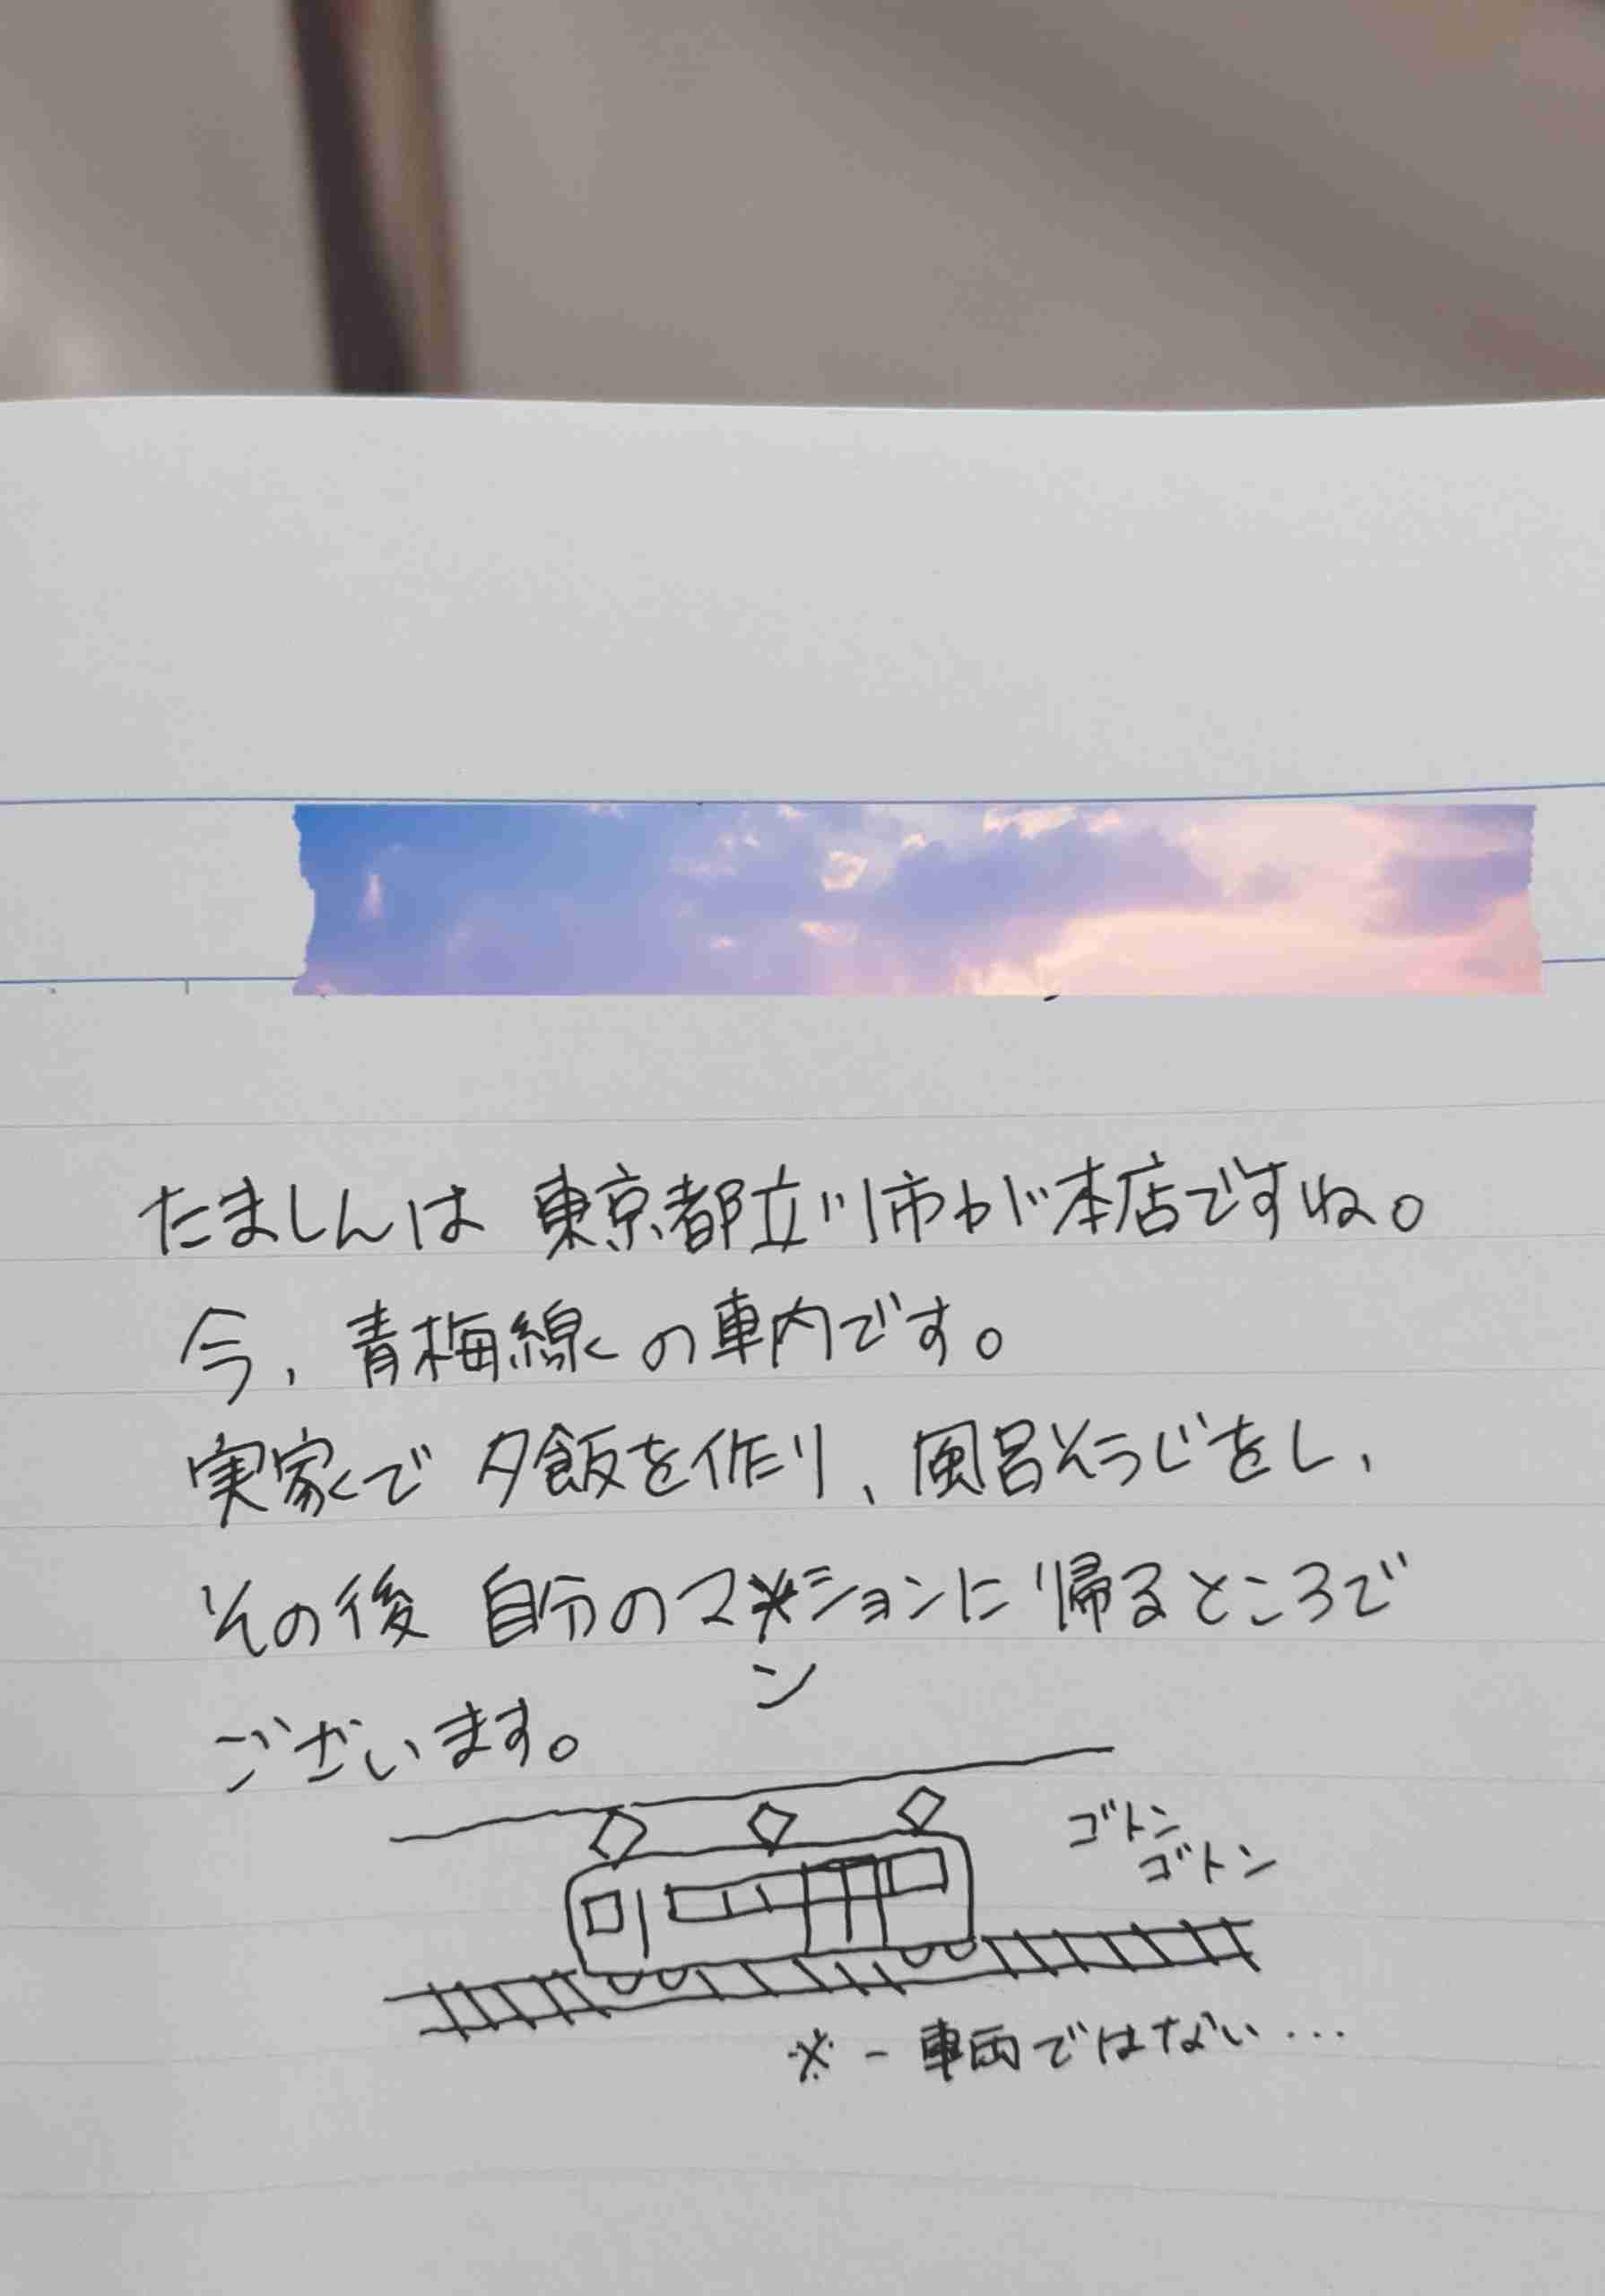 たましんは 東京都立川市が本店ですね。
今、青梅線の車内です。
実家で 夕飯を作り、風呂そうじをし、
その後 自分のマションに帰るところで
ン
ございます。
ゴトン
ゴトン
※一車両ではない…